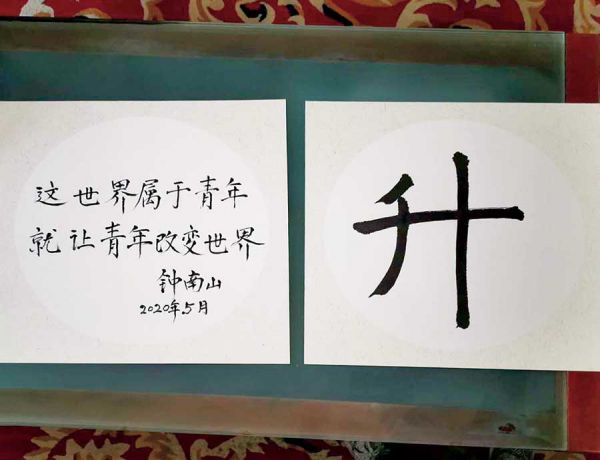 这世界属于青年
就让青年改变世界
钟南山
2020年5月
升